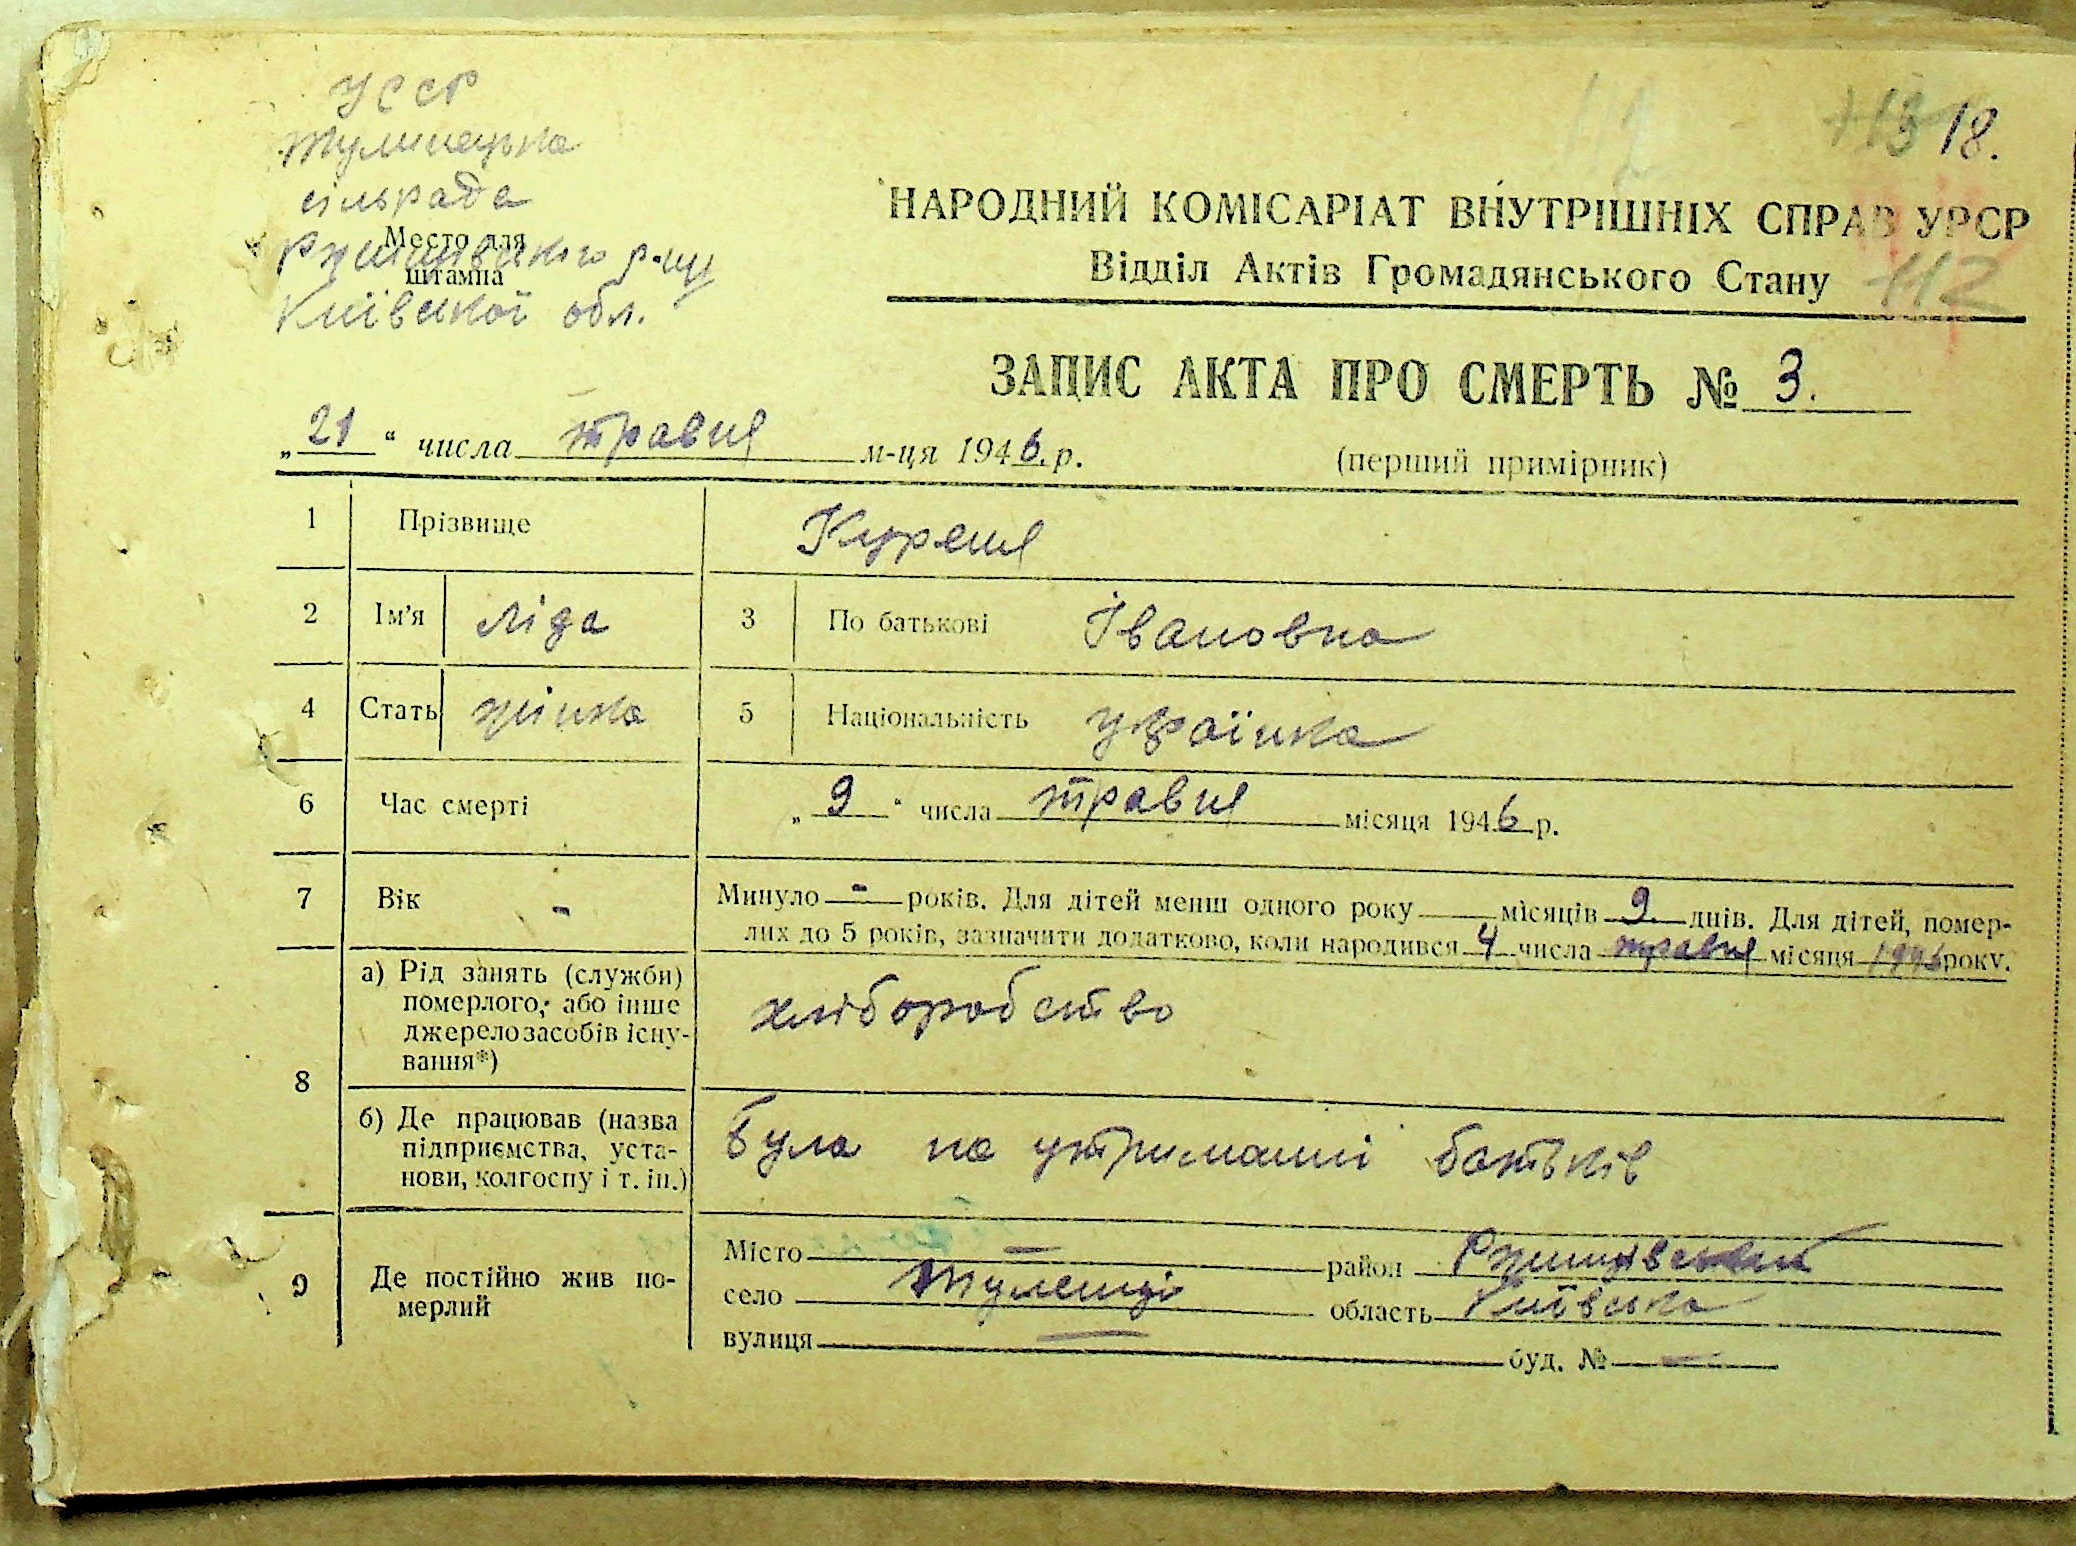 УССР
Тулинецька
сільрада
Место для
штампа
Ржищівського р-ну
Київської обл.
113 18.
112
НАРОДНИЙ КОМІСАРІАТ ВНУТРІШНІХ СПРАВ УРСР
Відділ Актів Громадянського Стану 112
ЗАПИС АКТА ПРО СМЕРТЬ № 3.
„21“ числа травня м-ця 1946. р.
(перший примірник)
1 Прізвище Куреня
2 Ім'я Ліда 3 По батькові Івановна
4 Стать жінка 5 Національність українка
6 Час смерті „9“ числа травня місяця 1946 р.
7 Вік - Минуло - років. Для дітей менш одного року місяців 9. днів. Для дітей, помер-
лих до 5 років, зазначити додатково, коли народився 4 числа травня місяця 1946 року.
8
а) Рід занять (служби)
померлого, або інше
джерело засобів існу-
вання*)
хліборобство
б) Де працював (назва
підприємства, уста-
нови, колгоспу і т. ін.)
була на утриманні батьків
9 Де постійно жив по-
мерлий
Місто — район Ржищівський
село Туленці область Київська
вулиця — буд. № —